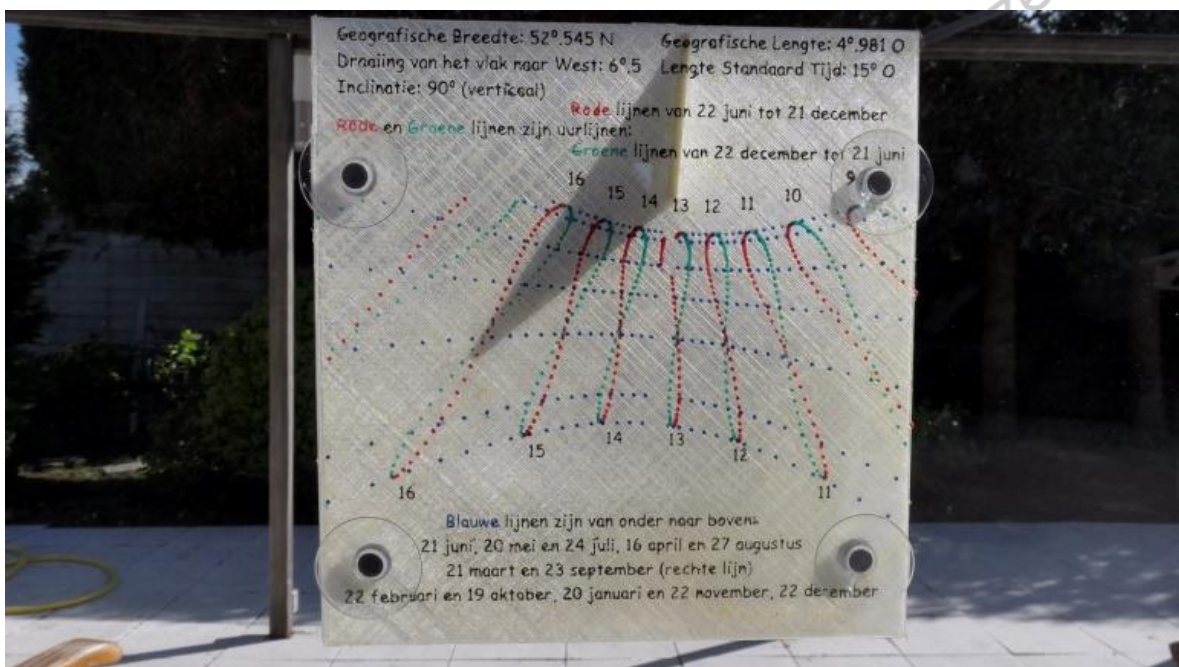 Geografische Breedte: 52°.545 N
Geografische Lengte: 4°.981 O
Draaiing van het vlak naar West: 6°.5
Lengte Standaard Tijd: 15° O
Inclinatie: 90° (verticaal)
Rode lijnen van 22 juni tot 21 december
Rode en Groene lijnen zijn uurlijnen:
Groene lijnen van 22 december tot 21 juni
16 15 14 13 12 11 10 9
16 15 14 13 12 11
Blauwe lijnen zijn van onder naar boven:
21 juni, 20 mei en 24 juli, 16 april en 27 augustus
21 maart en 23 september (rechte lijn)
22 februari en 19 oktober, 20 januari en 22 november, 22 december